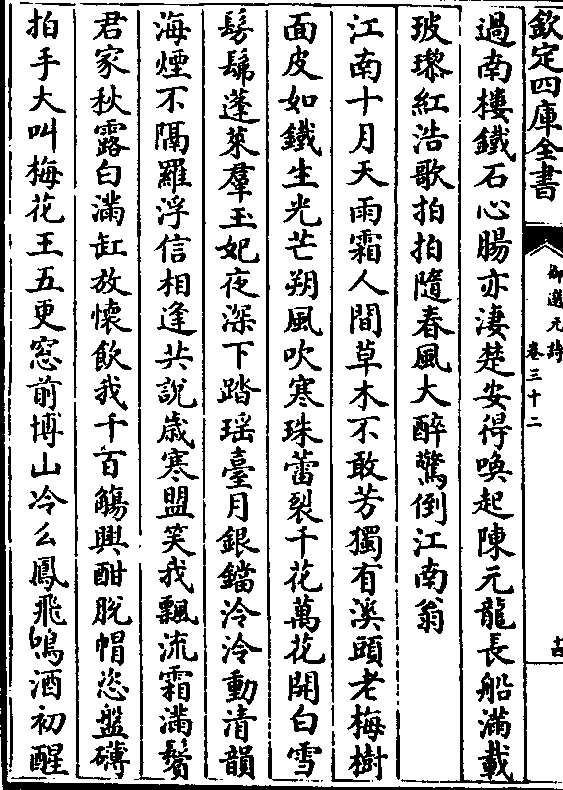 欽定四庫全書
御選元詩
卷三十二
十四
過南樓鐵石心腸亦淒楚安得喚起陳元龍長船滿載
玻瓈紅浩歌拍拍隨春風大醉驚倒江南翁
江南十月天雨霜人間草木不敢芳獨有溪頭老梅樹
面皮如鐵生光芒朔風吹寒珠蕾裂千花萬花開白雪
髣髴蓬萊羣玉妃夜深下踏瑤臺月銀鐺泠泠動清韻
海煙不隔羅浮信相逢共說歲寒盟笑我飄流霜滿鬢
君家秋露白滿缸放懷飲我千百觴興酣脫帽恣盤礴
拍手大叫梅花王五更窓前博山冷么鳳飛鳴酒初醒